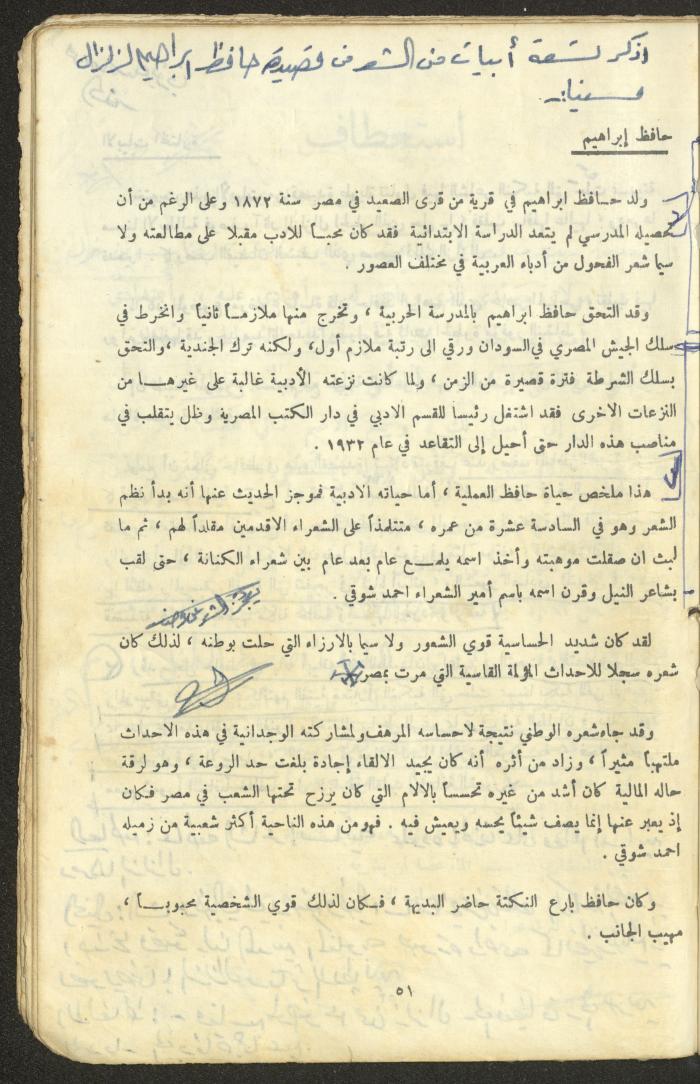 اذكر تسعة أبيات من الشعر من قصيدة حافظ ابراهيم لزلزال
مسينا.
حافظ إبراهيم
ولد حافظ ابراهيم في قرية من قرى الصعيد في مصر سنة ١٨٧٢ وعلى الرغم من أن
تحصيله المدرسي لم يتعد الدراسة الابتدائية فقد كان محباً للادب مقبلا على مطالعته ولا
سيا شعر الفحول من أدباء العربية في مختلف العصور .
وقد التحق حافظ ابراهيم بالمدرسة الحربية ، وتخرج منها ملازماً ثانياً وانخرط في
سلك الجيش المصري في السودان ورقي الى رتبة ملازم أول، ولكنه ترك الجندية ، والتحق
بسلك الشرطة فترة قصيرة من الزمن ، ولما كانت نزعته الأدبية غالبة على غيرها من
النزعات الاخرى فقد اشتغل رئيساً للقسم الادبي في دار الكتب المصرية وظل يتقلب في
مناصب هذه الدار حتى أحيل إلى التقاعد في عام ١٩٣٢ .
هذا ملخص حياة حافظ العملية ، أما حياته الادبية فموجز الحديث عنها أنه بدأ نظم
الشعر وهو في السادسة عشرة من عمره ، متتلمذاً على الشعراء الاقدمين مقلداً لهم ، ثم ما
لبث ان صقلت موهبته وأخذ اسمه يلمع عام بعد عام بين شعراء الكنانة ، حتى لقب
بشاعر النيل وقرن اسمه باسم أمير الشعراء احمد شوقي .
لقد كان شديد الحساسية قوي الشعور ولا سيا بالارزاء التي حلت بوطنه ، لذلك كان
شعره سجلا للاحداث المؤلمة القاسية التي مرت بمصر
وقد جاء شعره الوطني نتيجة لاحساسه المرهف ولمشاركته الوجدانية في هذه الاحداث
ملتهباً مثيراً ، وزاد من أثره أنه كان يجيد الالقاء إجادة بلغت حد الروعة ، وهو لرقة
حاله المالية كان أشد من غيره تحسساً بالالام التي كان يرزح تحتها الشعب في مصر فكان
إذ يعبر عنها إنما يصف شيئاً يحسه ويعيش فيه . فهو من هذه الناحية أكثر شعبية من زميله
احمد شوقي .
وكان حافظ بارع النكتة حاضر البديهة ، فكان لذلك قوي الشخصية محبوباً ،
مهيب الجانب .
٥١